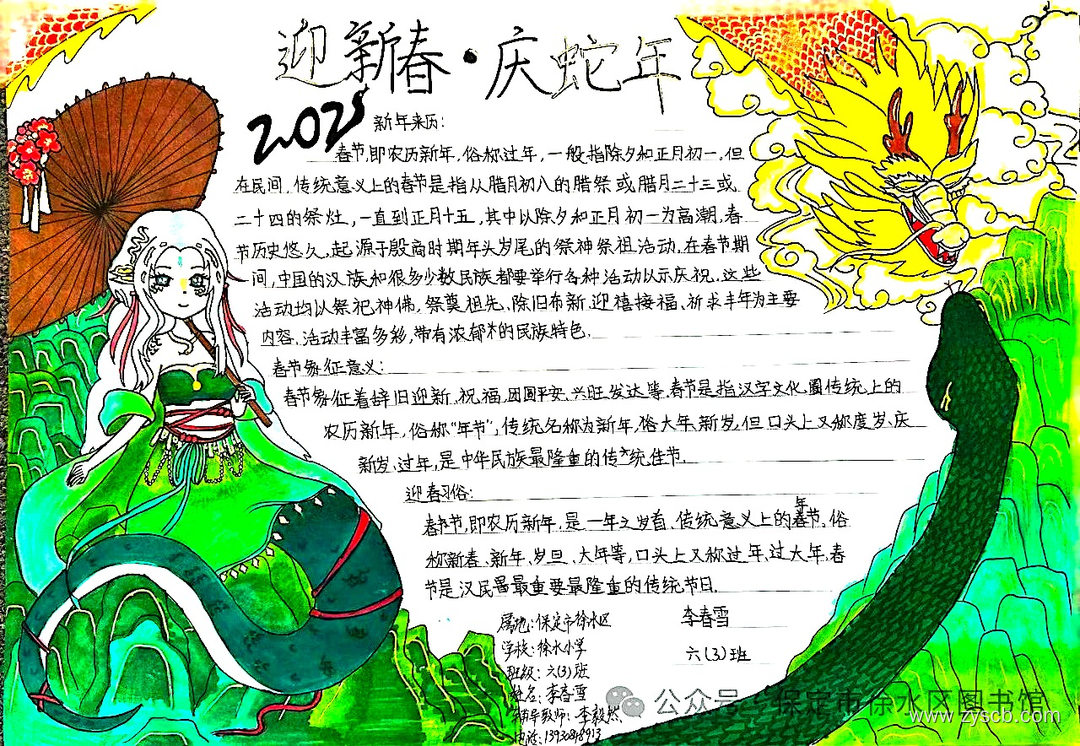 迎新春·庆蛇年
2025
新年来历:
春节,即农历新年,俗称过年,一般指除夕和正月初一,但
在民间,传统意义上的春节是指从腊月初八的腊祭或腊月二十三或
二十四的祭灶,一直到正月十五,其中以除夕和正月初一为高潮,春
节历史悠久,起源于殷商时期年头岁尾的祭神祭祖活动,在春节期
间,中国的汉族和很多少数民族都要举行各种活动以示庆祝,这些
活动均以祭祀神佛,祭奠祖先,除旧布新,迎禧接福、祈求丰年为主要
内容,活动丰富多彩,带有浓郁的民族特色.
春节象征意义:
春节象征着辞旧迎新、祝福、团圆平安、兴旺发达等,春节是指汉字文化圈传统上的
农历新年,俗称“年节”,传统名称为新年,俗大年、新岁,但口头上又称度岁、庆
新岁、过年,是中华民族最隆重的传统佳节.
迎春习俗:
春节,即农历新年,是一年之岁首,传统意义上的年节,俗
称新春、新年、岁旦、大年等,口头上又称过年、过大年,春
节是汉民最重要最隆重的传统节日.
属地:保定市徐水区
李春雪
学校:徐水小学
六(3)班
班级:六(3)班
姓名:李春雪
辅导教师:李毅然
公众号·保定市徐水区图书馆
www.zyscb.com